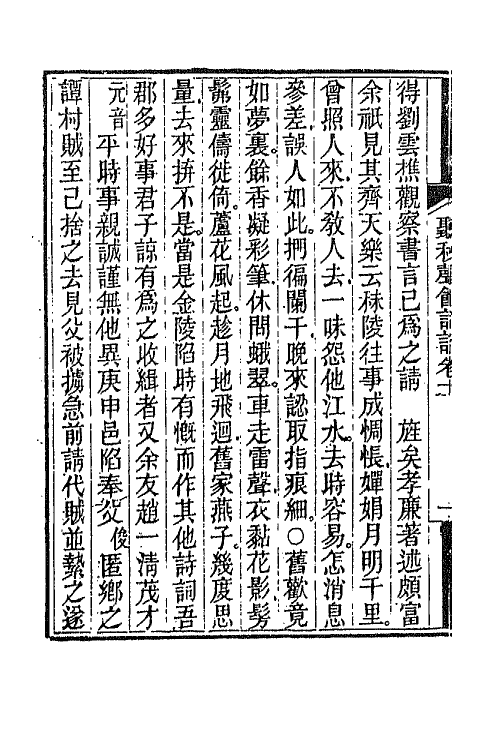 得劉雲樵觀察書言已爲之請　旌矣孝廉著述頗富
余祇見其齊天樂云秣陵往事成惆悵嬋娟月明千里。
曾照人來、不敎人去一昧怨他江水。去時容易。怎消息、
參差誤人如此。捫徧闌干晚來認取指痕細。○舊歡竟
如夢裏。餘香凝彩筆、休問蛾翠。車走雷聲、衣黏花影、髣
髴靈儔徙倚。蘆花風起。趁月地飛迴舊家燕子。幾度思
量、去來拚不是。當是金陵陷時有慨而作其他詩詞吾
郡多好事君子諒有爲之收緝者又余友趙一淸茂才
元音平時事親誠謹無他異庚申邑陷奉父俊匿鄉之
譚村賊至已捨之去見父被擄急前請代賊並縶之遂
聽秋聲館詞話卷十